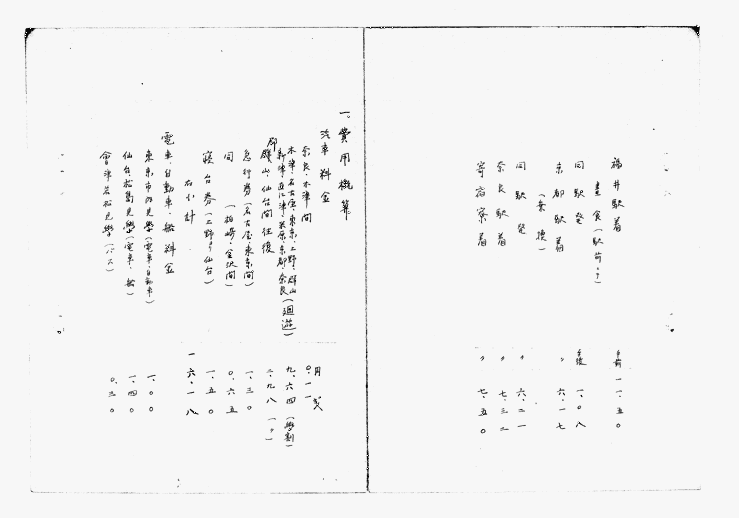 福井駅着 午前 一一、五〇
昼食（駅前・〃）
同駅発 午後 一、〇八
京都駅着 〃 六、一七
（乗換）
同駅発 〃 六、二一
奈良駅着 〃 七、三二
寄宿寮着 〃 七、五〇
一、費用概算
汽車料金 円
奈良、木津間 〇、一一
木津・名古屋・東京・上野・郡山
新津・直江津・米原・京都・奈良（廻遊） 九、六四（學割）
郡山、仙台間往復 二、九八（〃）
急行券（名古屋・東京間） 一、三〇
同（柏崎・金沢間） 〇、六五
寝台券（上野ヨリ仙台） 一、五〇
右小計 一六、一八
電車・自動車・船料金
東京市内見學（電車・自動車） 一、〇〇
仙台松島見學（電車、船） 一、四〇
會津若松見學（バス） 〇、三〇